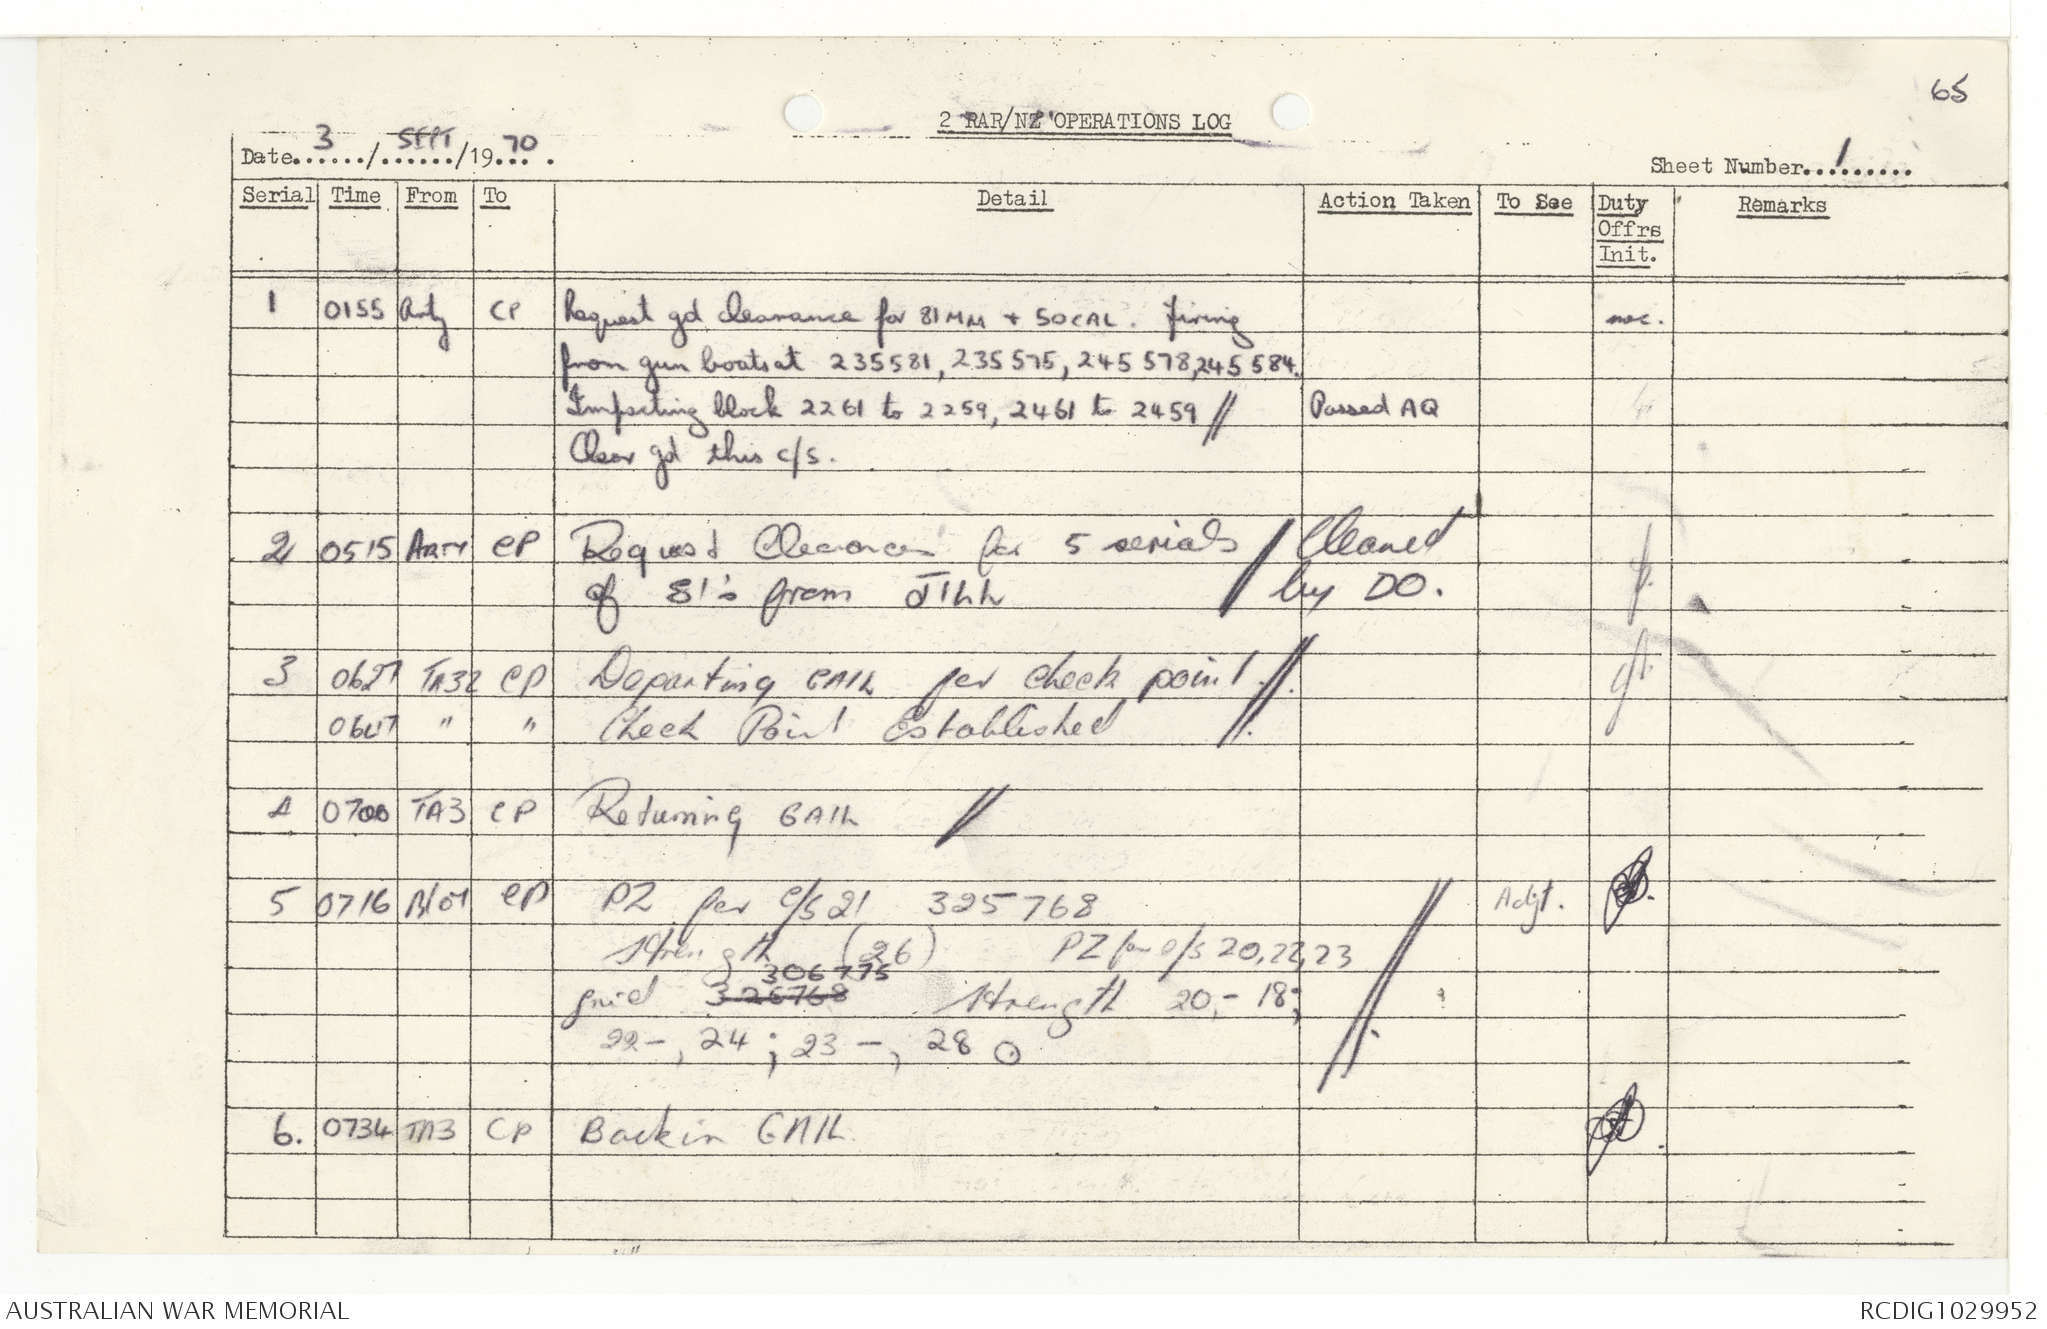 65
2 RAR/NZ OPERATIONS LOG
Date...3.../.SEPT./1970.
Sheet Number...1...
Serial Time From To Detail Action Taken To See Duty Offrs Init. Remarks
1 0155 Arty CP Request gd clearance for 81MM + 50CAL. Firing
from gun boats at 235581, 235575, 245578, 245584.
Impacting block 2261 to 2259, 2461 to 2459 // Passed AQ
Clear gd this c/s.
2 0515 ARTY CP Request Clearance for 5 serials // Cleared
of 81's from JILL by DO.
3 0627 TA32 CP Departing GAIL for check point. //
0647 " " Check Point Established //
4 0700 TA3 CP Returning GAIL //
5 0716 CP PZ for c/s 21 325768 // Adjt.
strength (26) PZ for c/s 20, 22, 23
306775
grid 326768 strength 20,- 18;
22-, 24; 23-, 28
6. 0734 TA3 CP Back in GAIL.
AUSTRALIAN WAR MEMORIAL
RCDIG1029952